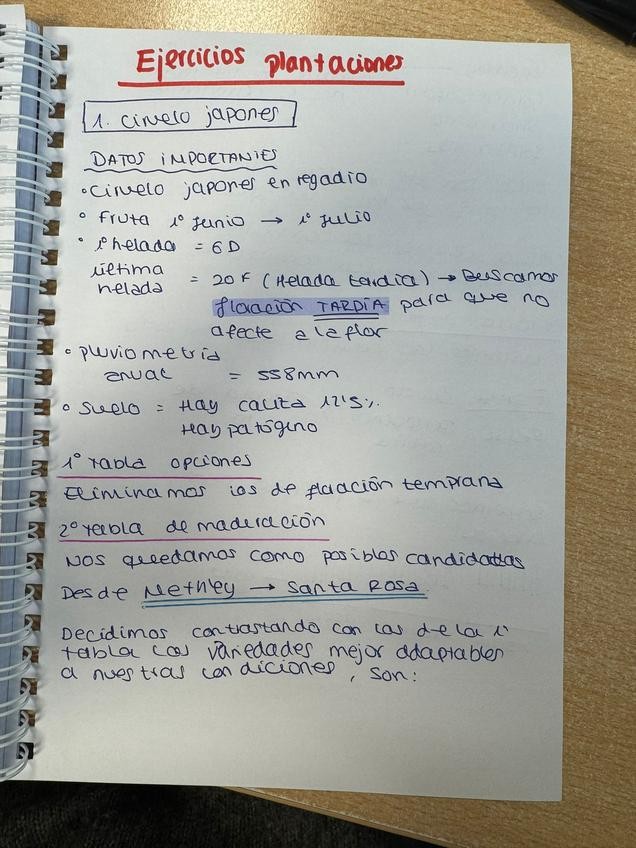 Ejercicios plantaciones
1. ciruelo japones
DATOS IMPORTANTES
• Ciruelo japones en regadio
• fruta 1º junio → 1º julio
• 1º helada = 6 D
última
helada = 20 F (Helada tardia) → Buscamos
floración TARDÍA para que no
afecte a la flor
• pluviometria
anual = 558mm
• Suelo = Hay caliza 12'5%.
Hay patógino
1º tabla opciones
Eliminamos los de floración temprana
2º tabla de maderación
Nos quedamos como posibles candidatas
Desde Methley → Santa Rosa
Decidimos contrastando con las de la 1º
tabla las variedades mejor adaptables
a nuestras condiciones, son: